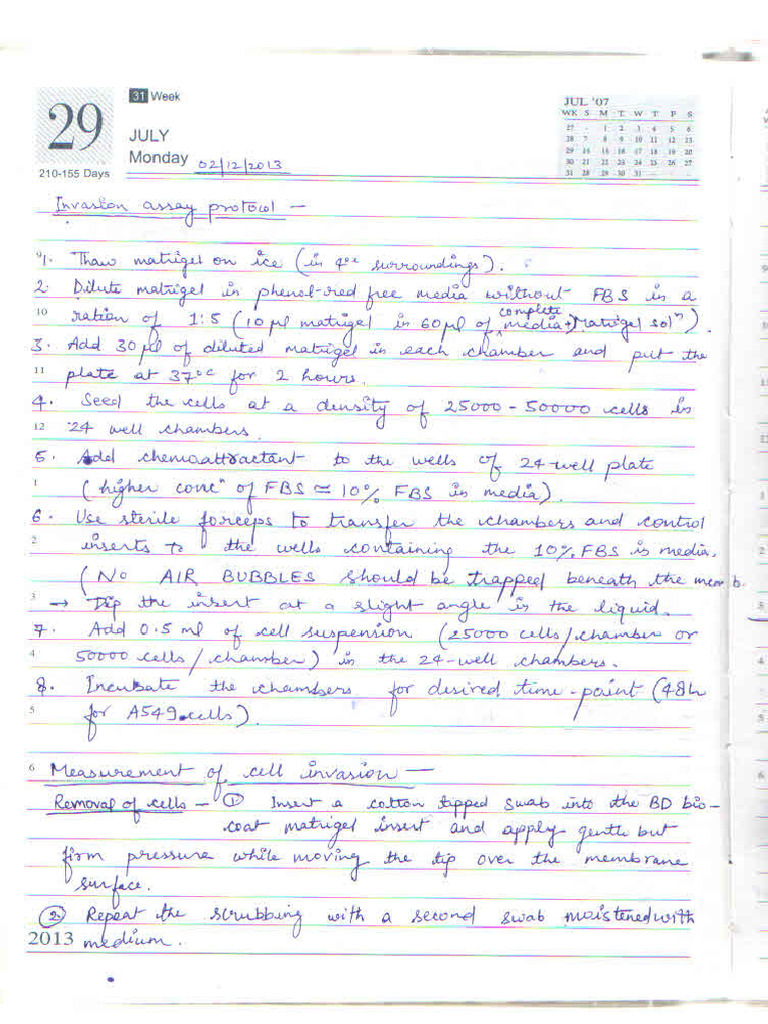 31 Week
29
JULY
Monday 02/12/2013
210-155 Days
JUL '07
WK S M T W T F S
27 - 1 2 3 4 5 6
28 7 8 9 10 11 12 13
29 14 15 16 17 18 19 20
30 21 22 23 24 25 26 27
31 28 29 30 31 - - -
Invasion assay protocol —
1. Thaw matrigel on ice (in 4°c surroundings).
2. Dilute matrigel in phenol-red free media without FBS in a
complete
10 ration of 1:5 (10 µl matrigel in 60 µl of media + Matrigel solⁿ).
3. Add 30 µl of diluted matrigel in each chamber and put the
11 plate at 37°c for 2 hours.
4. Seed the cells at a density of 25000 - 50000 cells in
12 24 well chambers.
5. Add chemoattractant to the wells of 24-well plate
1 (higher concⁿ of FBS ≃ 10% FBS in media).
6. Use sterile forceps to transfer the chambers and control
2 inserts to the wells containing the 10% FBS in media.
(NO AIR BUBBLES should be trapped beneath the memb.
3 → Dip the insert at a slight angle in the liquid.
7. Add 0.5 ml of cell suspension (25000 cells/chamber or
4 50000 cells/chamber) in the 24-well chambers.
8. Incubate the chambers for desired time-point (48h
5 for A549 cells).
6 Measurement of cell invasion —
Removal of cells — ① Insert a cotton tipped swab into the BD bio-
coat matrigel insert and apply gentle but
firm pressure while moving the tip over the membrane
surface.
② Repeat the scrubbing with a second swab moistened with
2013 medium.